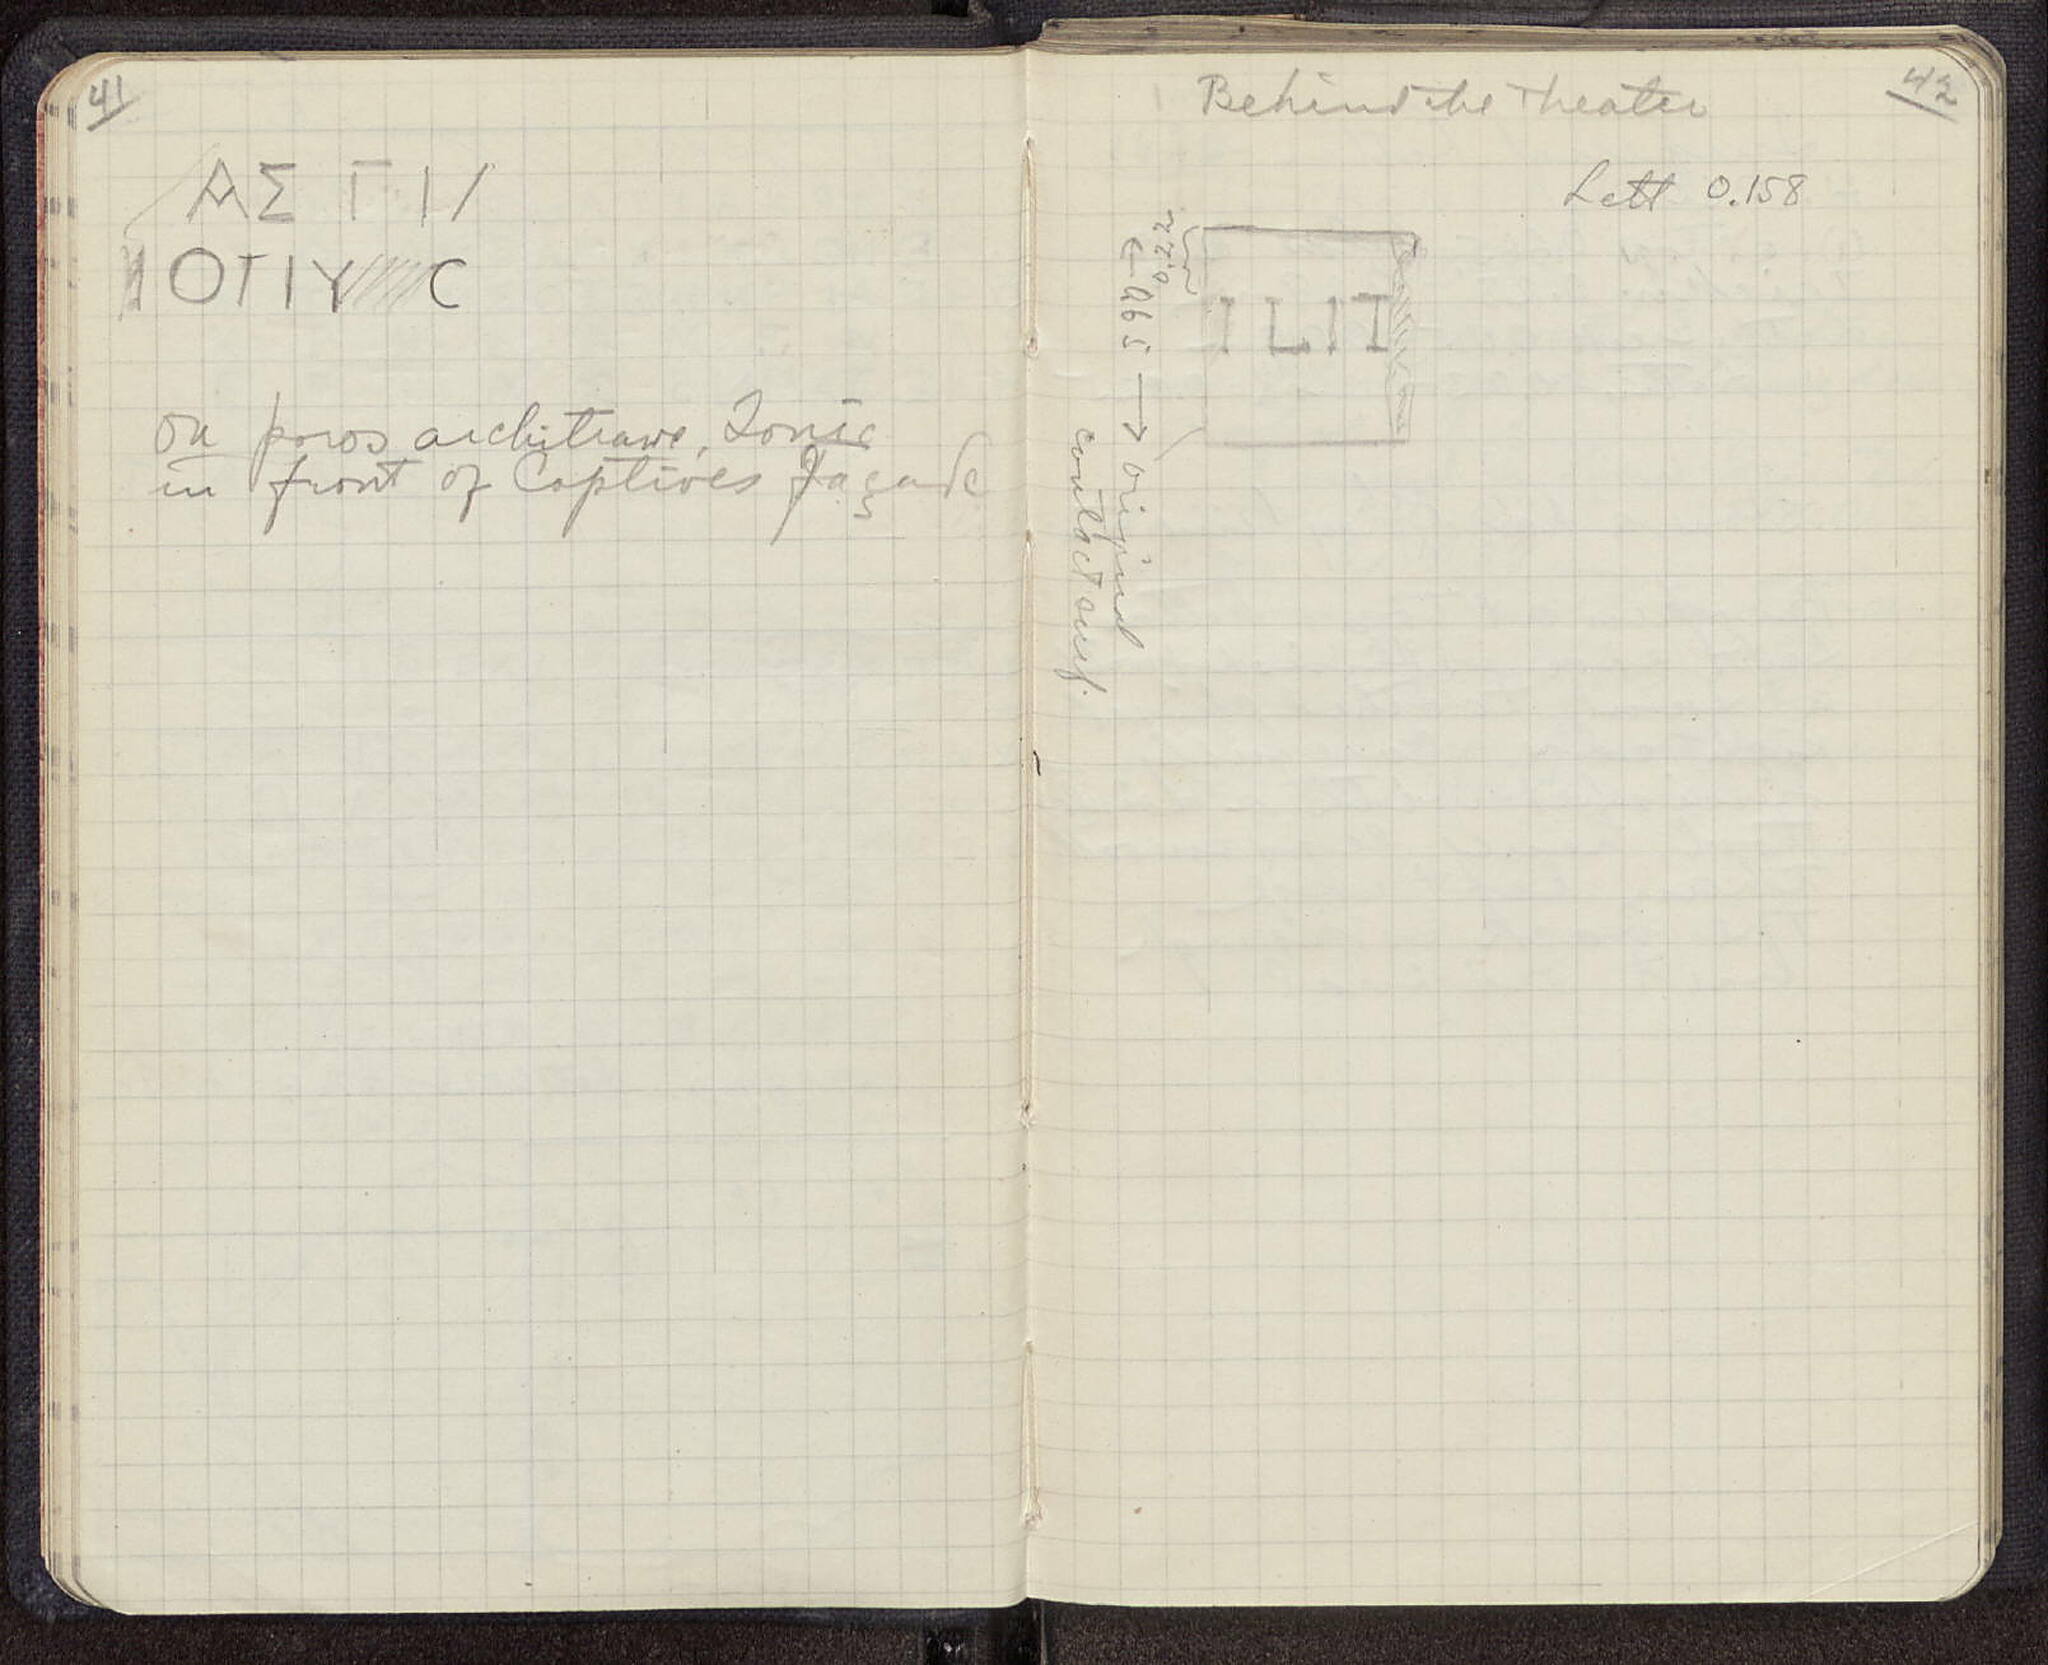 41
ΑΣ Γ Ι/
ΙΟΓΙΥ C
on poros architrave, Ionic
in front of Captives Façade
42
Behind the Theater
Lett 0.158
0.22
ILIT
← 0.65 →
original
contact surf.